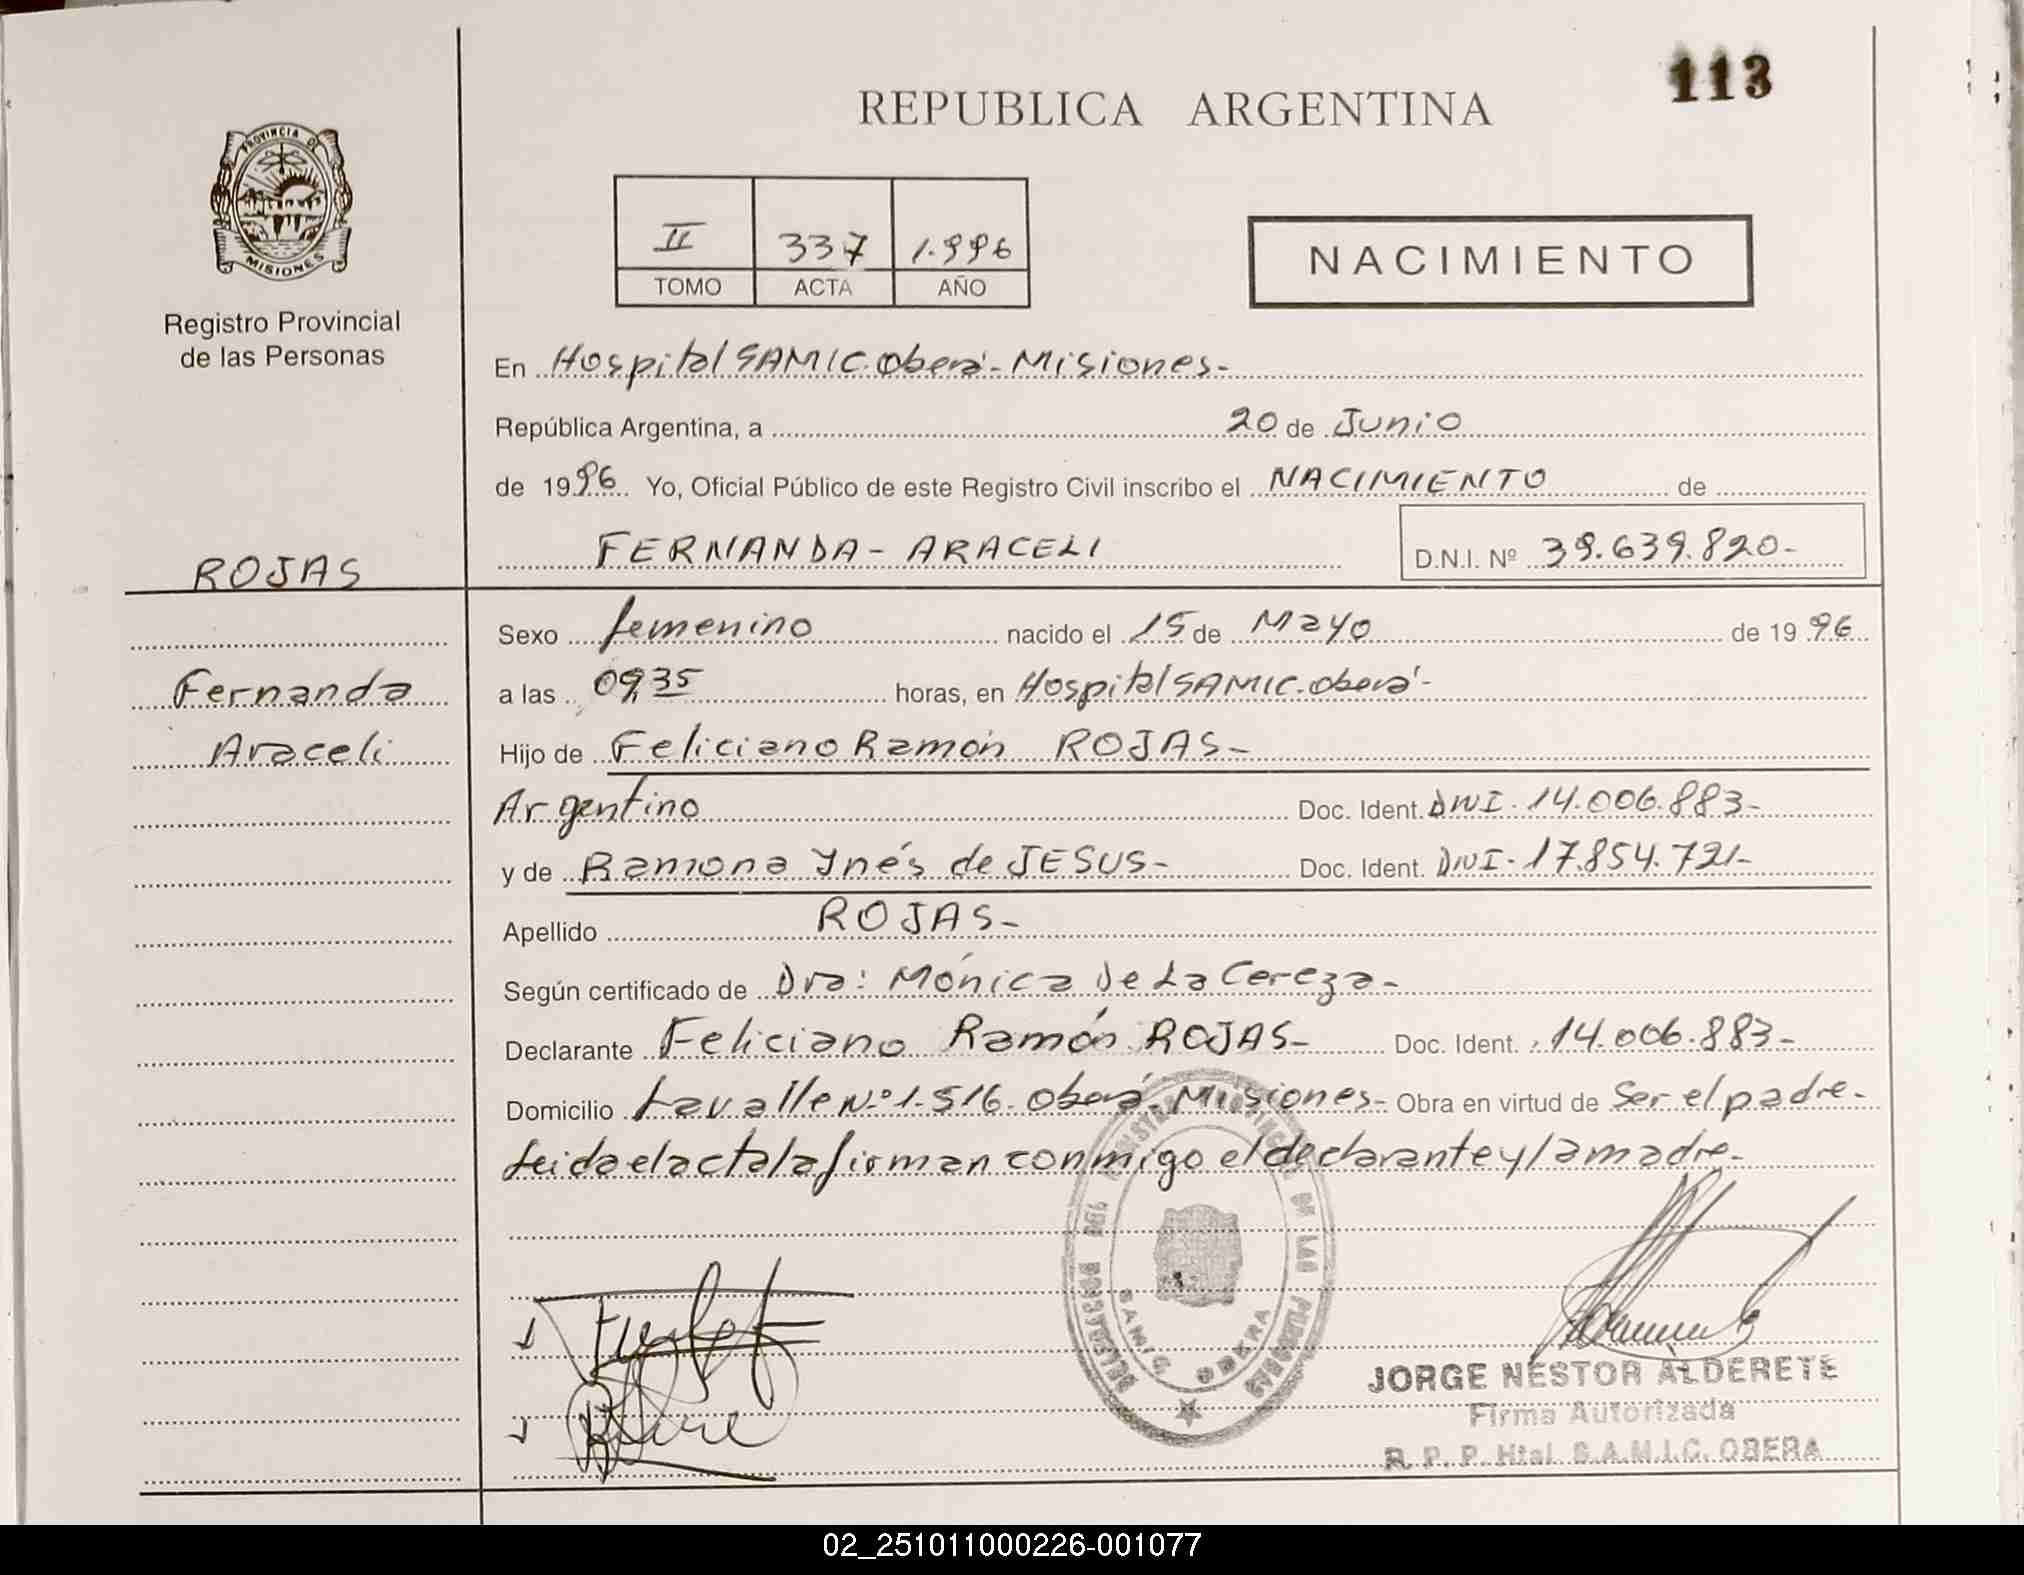 113
REPUBLICA ARGENTINA
PROVINCIA DE
MISIONES
Registro Provincial
de las Personas
II 337 1.996
TOMO ACTA AÑO
NACIMIENTO
En Hospital SAMIC. Oberá - Misiones-
República Argentina, a 20 de Junio
de 1996 Yo, Oficial Público de este Registro Civil inscribo el NACIMIENTO de
FERNANDA - ARACELI D.N.I. Nº 39.639.820-
ROJAS
Fernanda
Araceli
Sexo femenino nacido el 15 de Mayo de 1996
a las 09,35 horas, en Hospital SAMIC. Oberá-
Hijo de Feliciano Ramón ROJAS-
Argentino Doc. Ident. DNI. 14.006.883-
y de Ramona Ynés de JESUS- Doc. Ident. DNI- 17.854.721-
Apellido ROJAS-
Según certificado de Dra: Mónica De La Cereza-
Declarante Feliciano Ramón ROJAS- Doc. Ident. 14.006.883-
Domicilio Lavalle N.º 1.516. Oberá- Misiones- Obra en virtud de Ser el padre-
Leida el acta la firman conmigo el declarante y la madre-
REGISTRO PROVINCIAL DE LAS PERSONAS
SAMIC OBERA
JORGE NESTOR ALDERETE
Firma Autorizada
R. P. P. Htal. S.A.M.I.C. OBERA
02_251011000226-001077